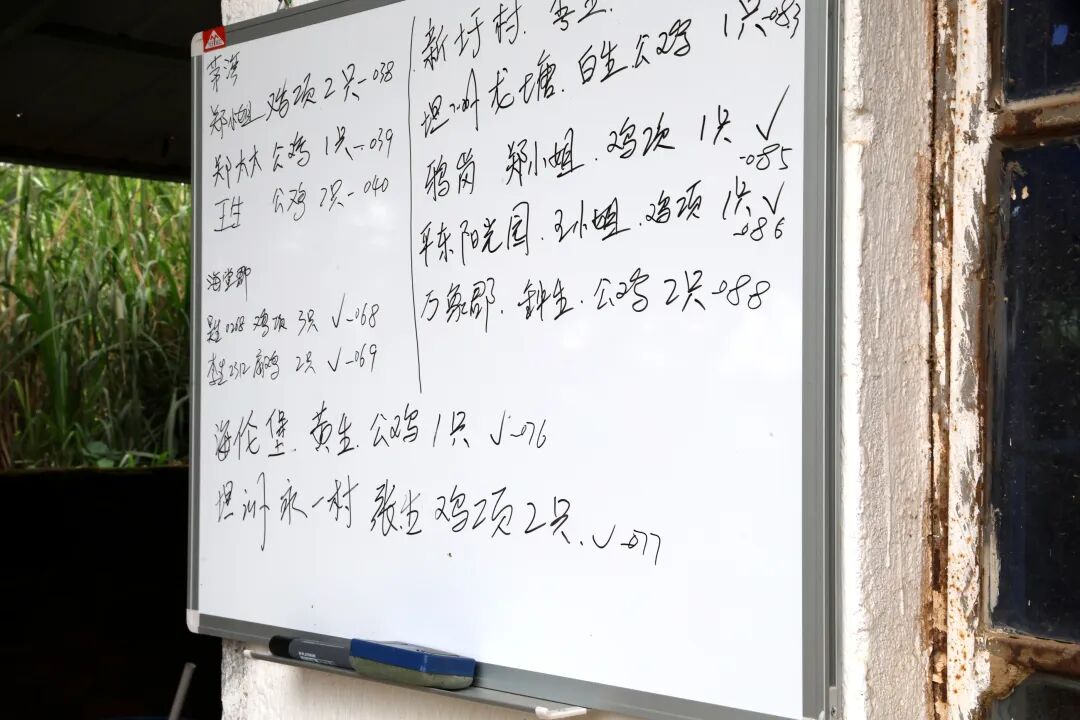 郑小姐 鸡项 2只-038
郑太太 公鸡 1只-039
王生 公鸡 2只-040
海堂郡
0208 鸡项 3只 √-068
李生2312 鸡 2只 √-069
海伦堡.黄生.公鸡1只 √-076
坦洲永一村 张生 鸡项2只.√-077
新圩村.
坦洲龙塘.白生.公鸡 1只-083
鸦岗 郑小姐.鸡项 1只 √
-085
平东阳光园.王小姐.鸡项 1只√
-086
万象郡.钟生.公鸡2只-088